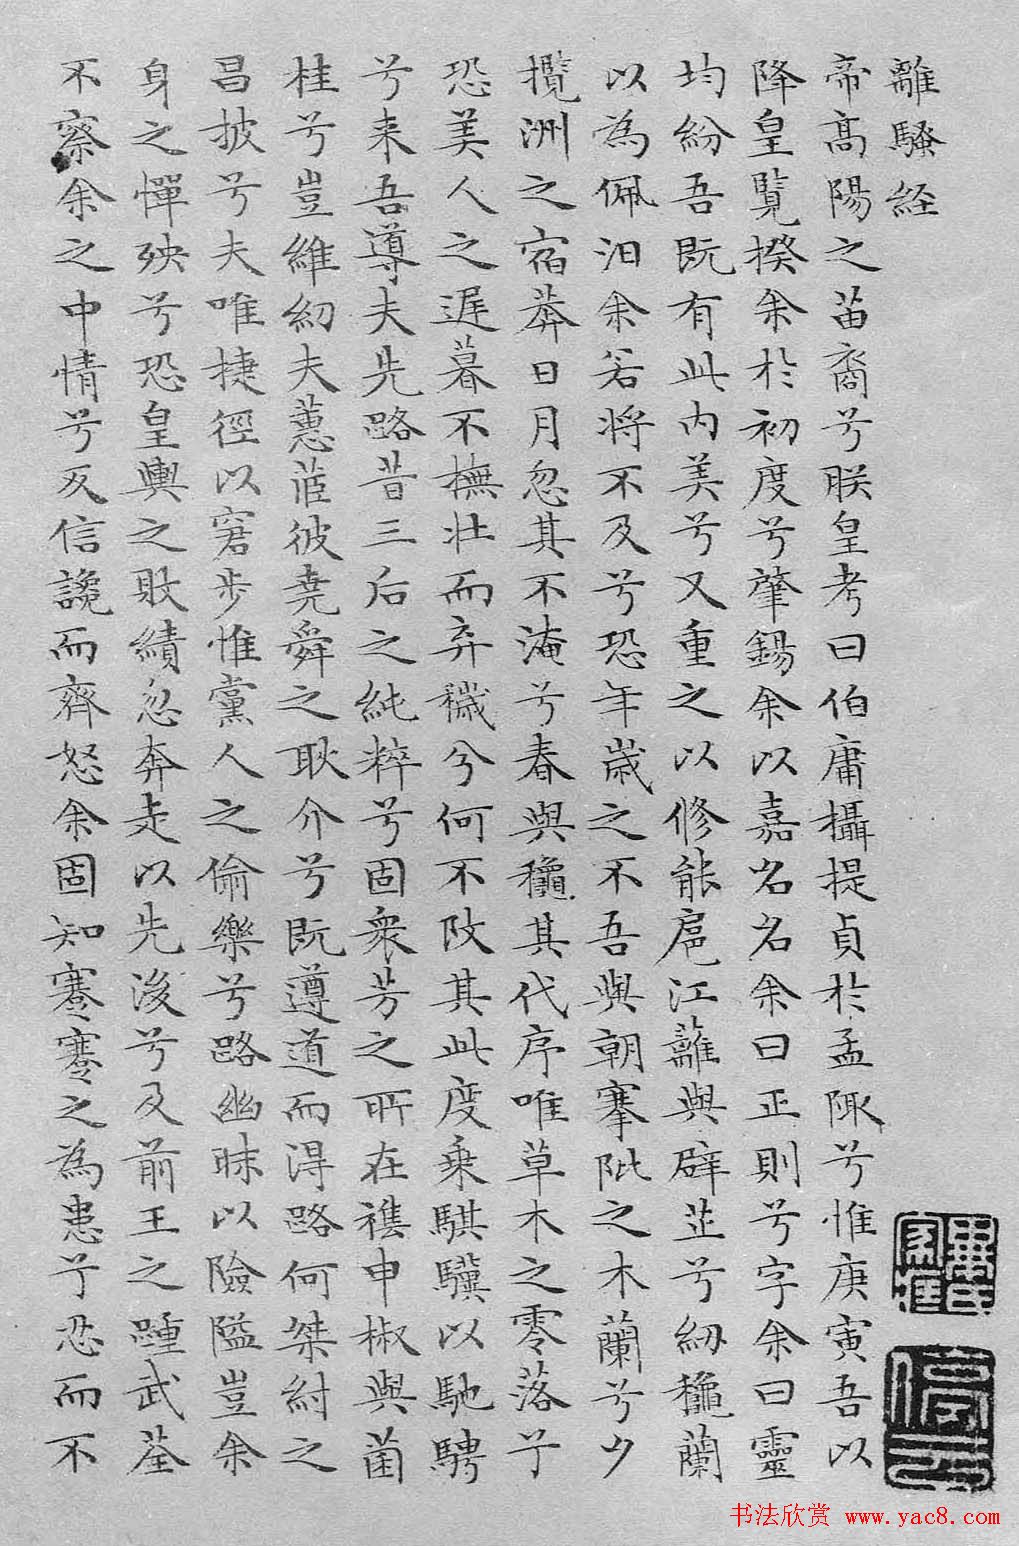 離騷経
帝高陽之苗裔兮朕皇考曰伯庸攝提貞於孟陬兮惟庚寅吾以
降皇覧揆余於初度兮肇錫余以嘉名名余曰正則兮字余曰靈
均紛吾既有此内美兮又重之以修能扈江蘺與辟芷兮紉穐蘭
以為佩汨余若将不及兮恐年歳之不吾與朝搴阰之木蘭兮夕
攬洲之宿莽日月忽其不淹兮春與穐其代序唯草木之零落兮
恐美人之遅暮不撫壮而弃穢兮何不改其此度乗騏驥以馳騁
兮来吾導夫先路昔三后之純粹兮固衆芳之所在雜申椒與菌
桂兮豈維紉夫蕙茝彼尭舜之耿介兮既遵道而得路何桀紂之
昌披兮夫唯捷徑以窘步惟黨人之偷樂兮路幽昧以險隘豈余
身之憚殃兮恐皇輿之敗績忽奔走以先後兮及前王之踵武荃
不察余之中情兮反信讒而齊怒余固知謇謇之為患兮忍而不
停雲
书法欣赏 www.yac8.com